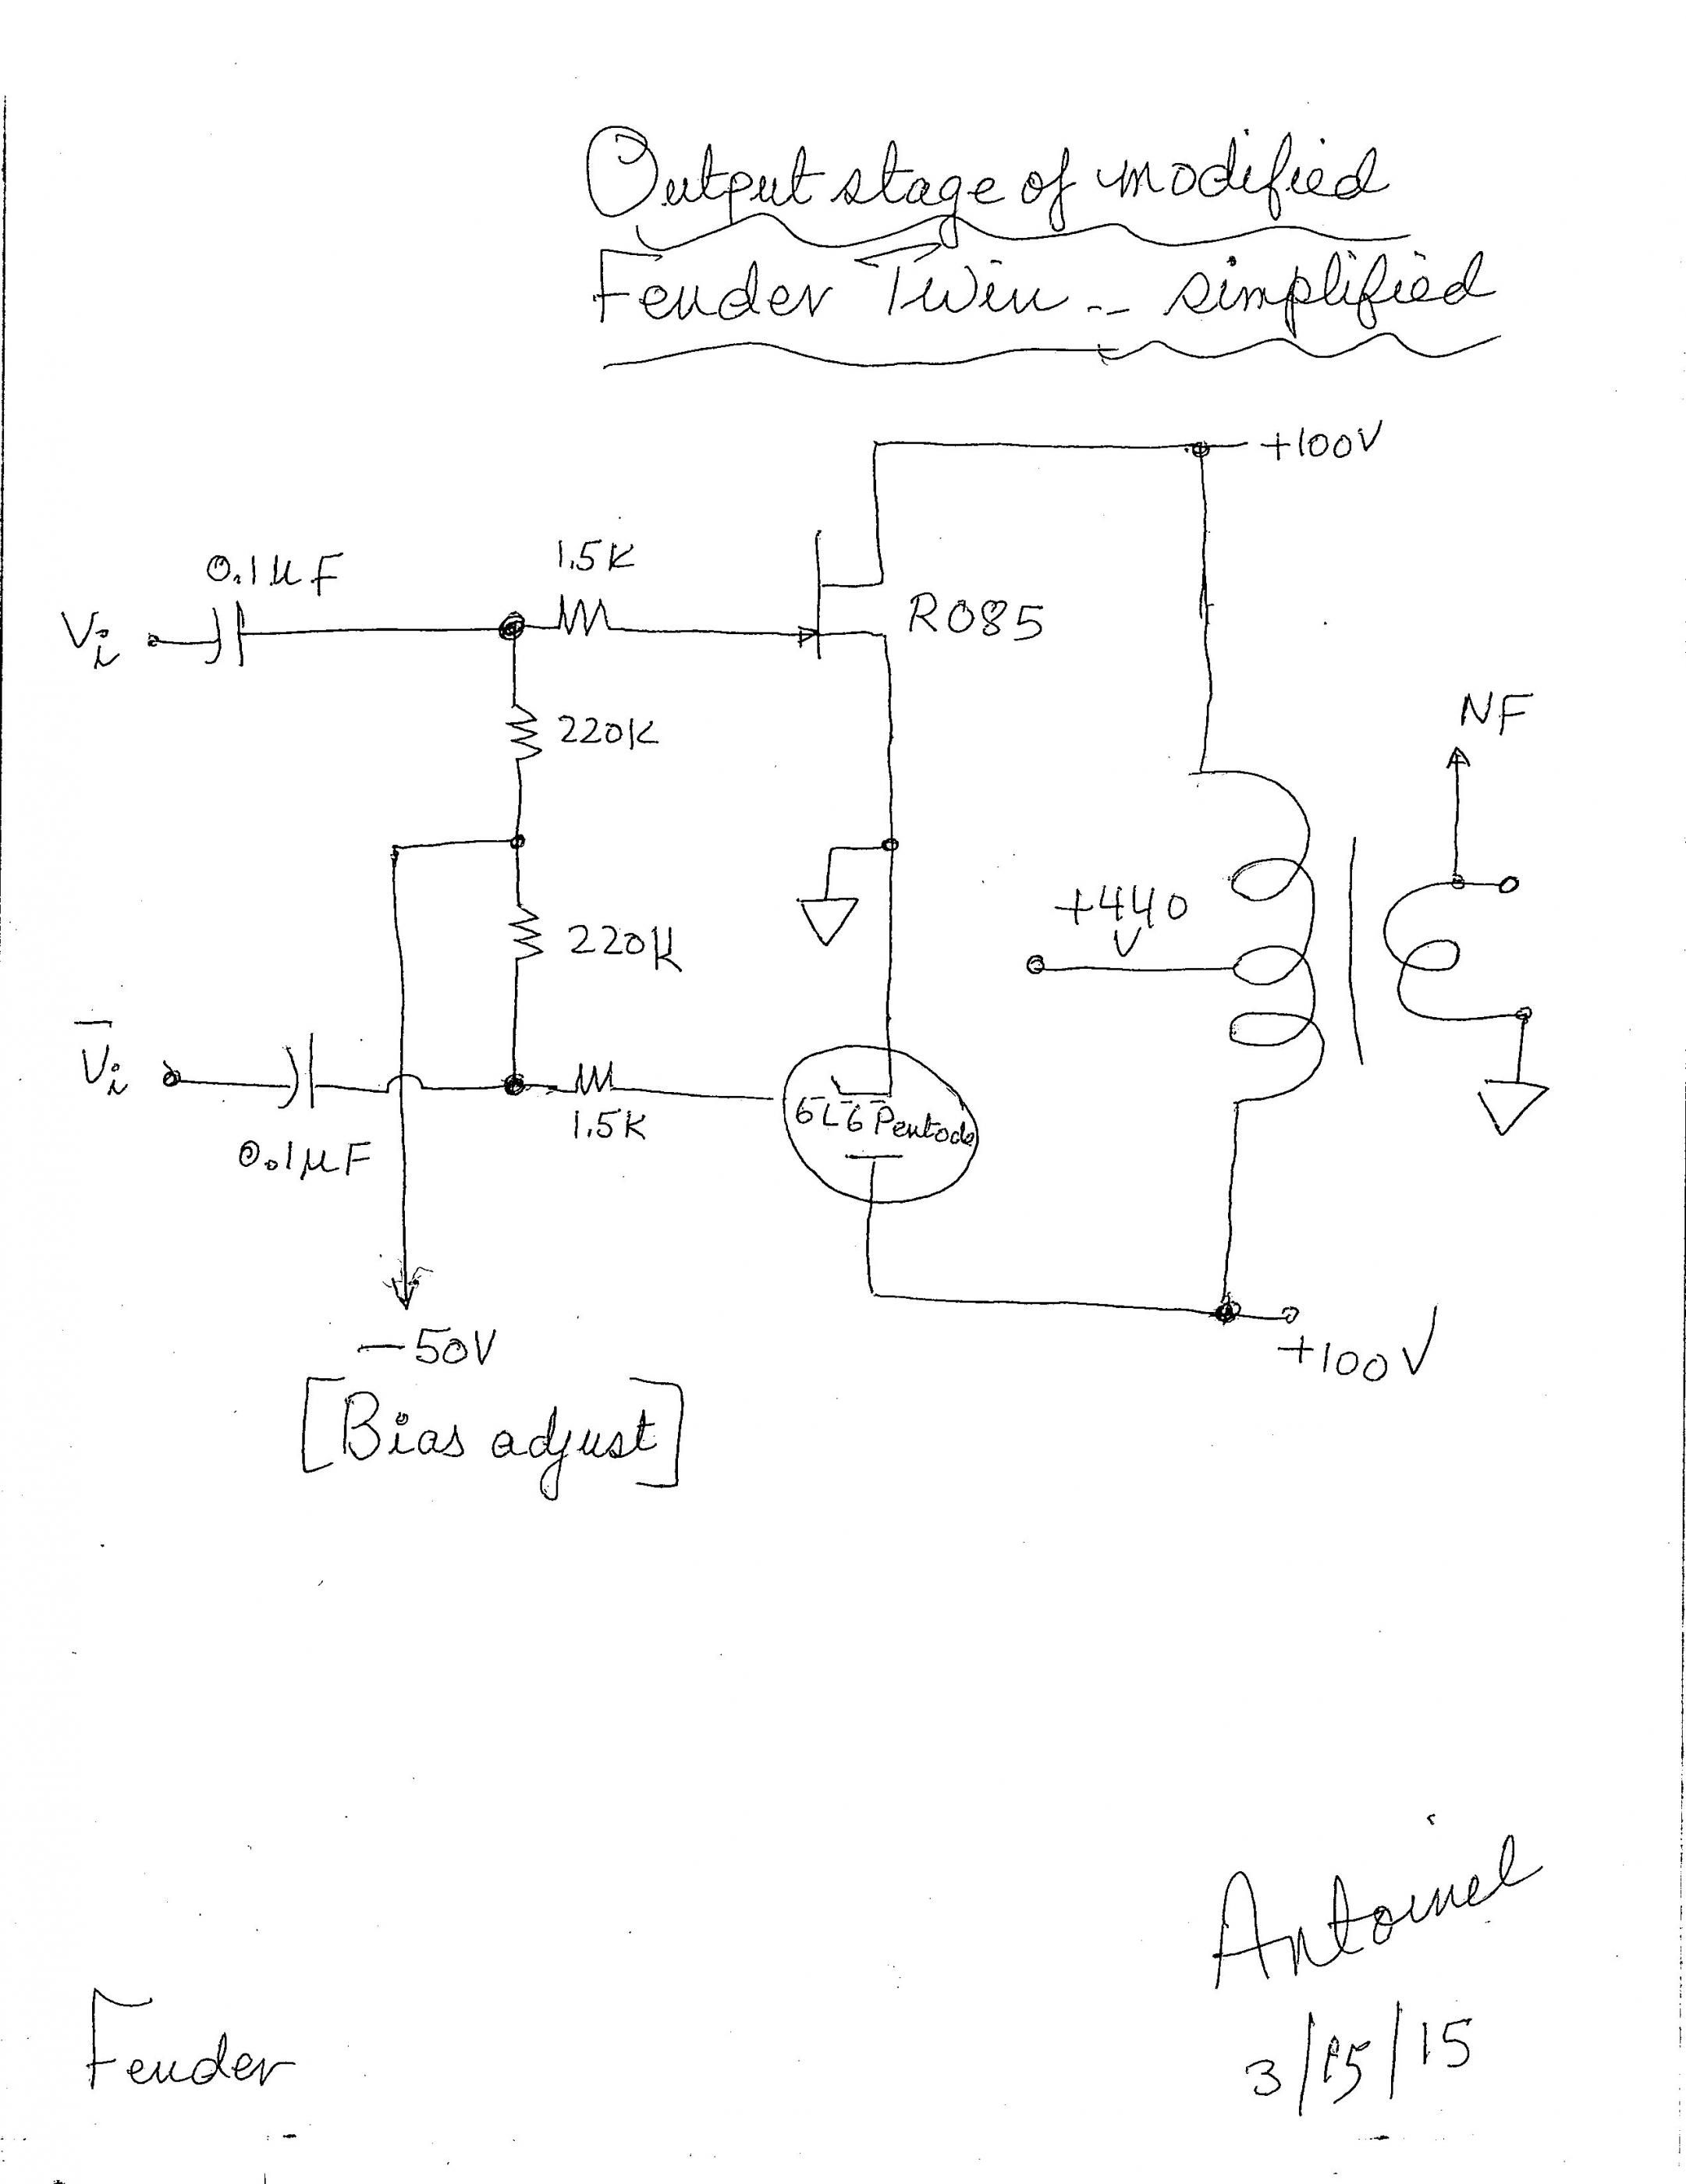 Output stage of modified
Fender Twin -- simplified
+100V
0.1µF
1.5K
Vi
R085
220K
NF
+440
V
220K
V̅i
6L6 Pentode
1.5K
0.1µF
-50V
+100V
[Bias adjust]
Antoinel
3/15/15
Fender